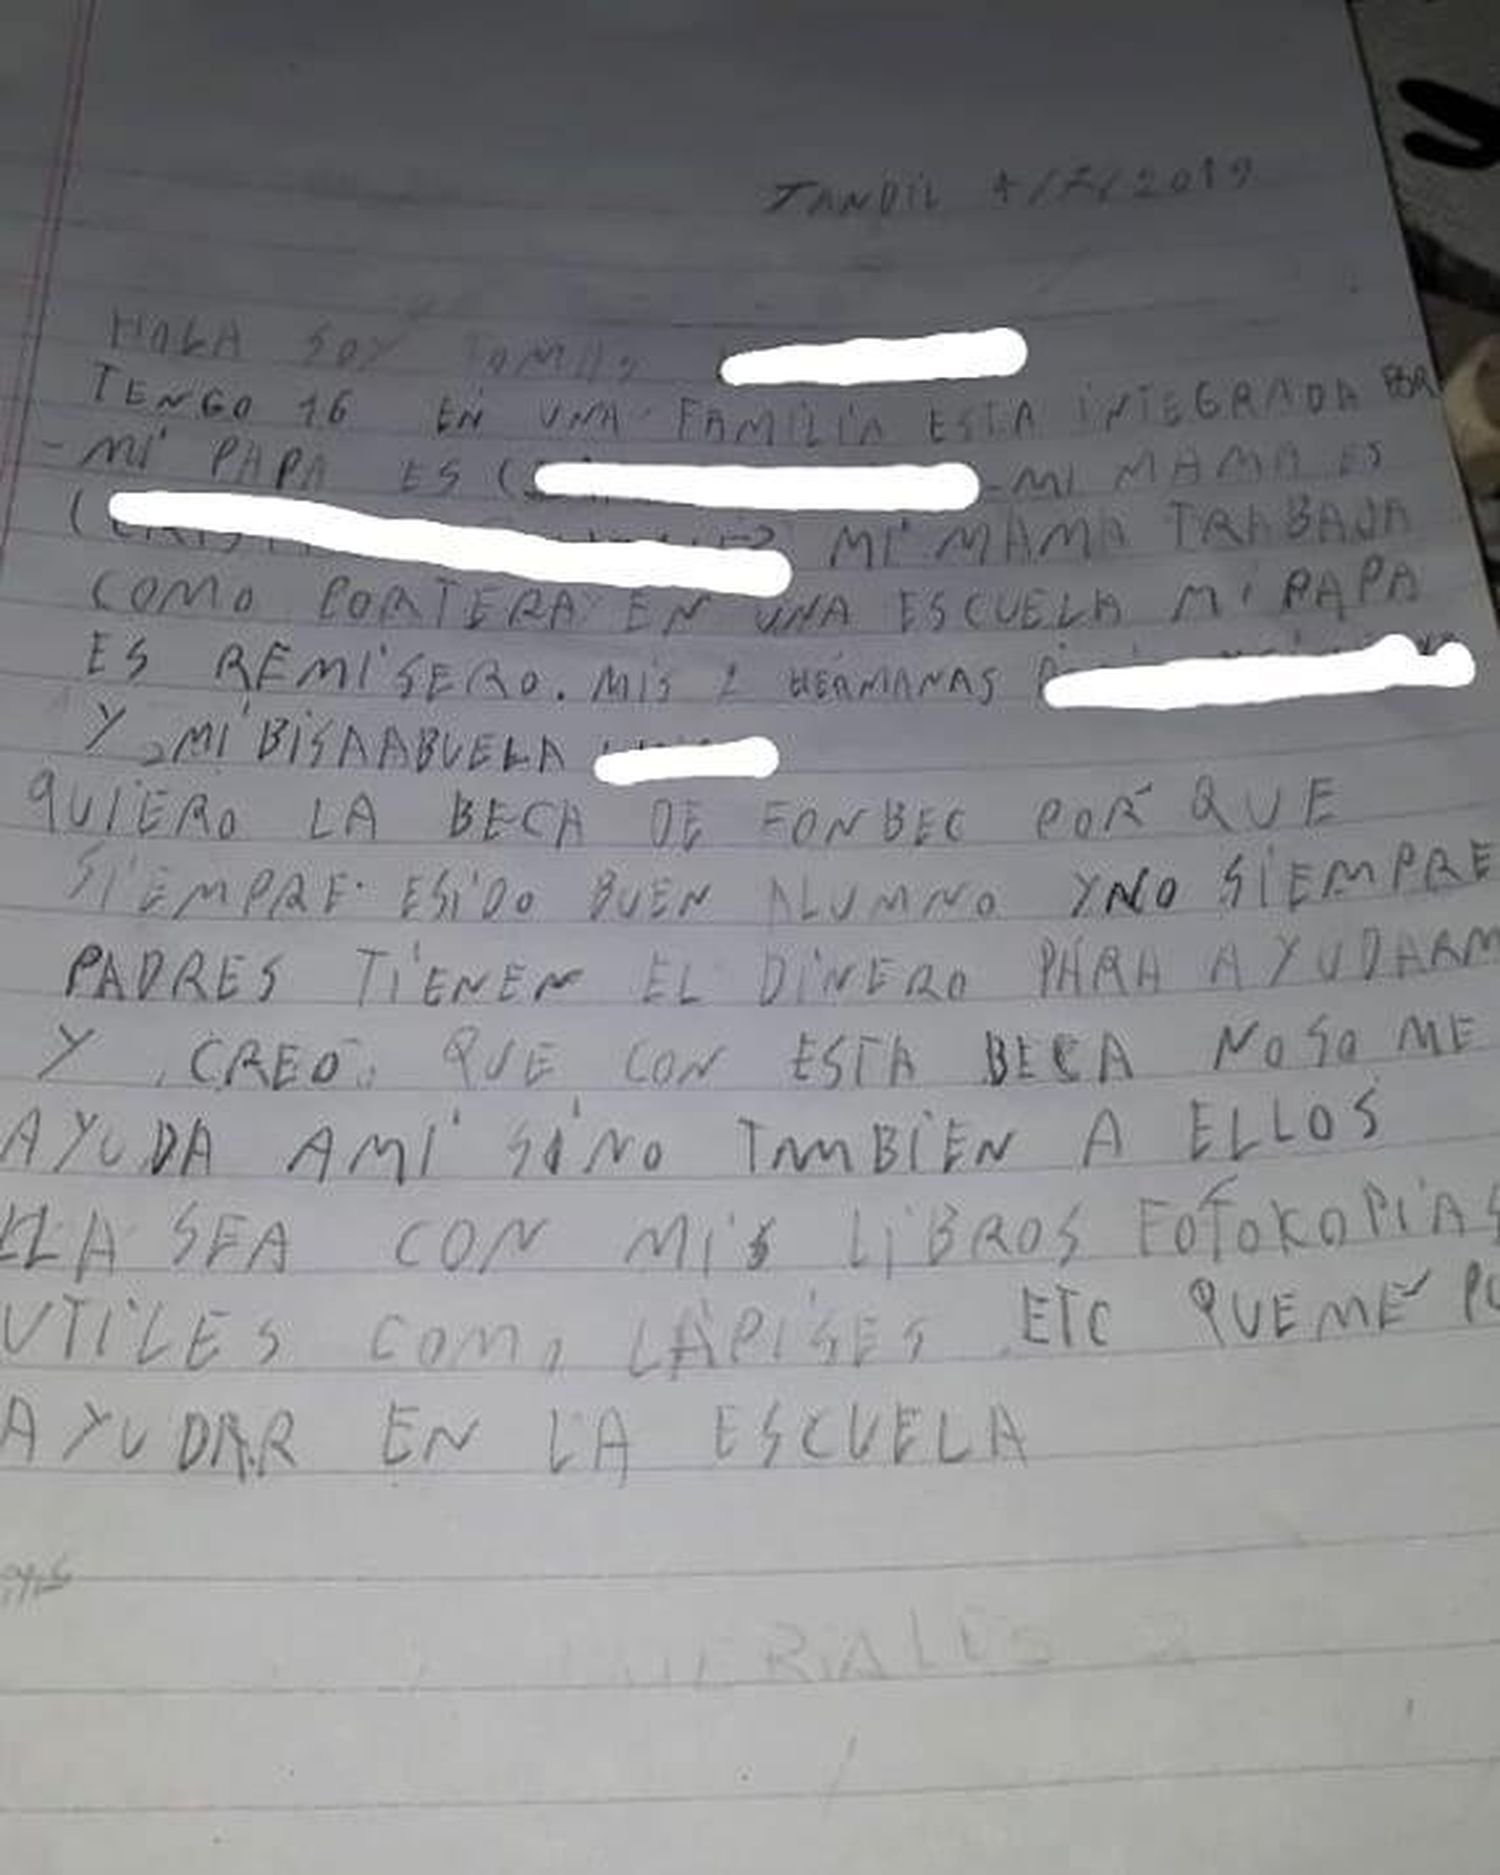 TANDIL 4/7/2019
HOLA SOY TOMAS
TENGO 16 EN UNA FAMILIA ESTA INTEGRADA POR
- MI PAPA ES ( - MI MAMA ES
( MI MAMA TRABAJA
COMO PORTERA EN UNA ESCUELA MI PAPA
ES REMISERO. MIS 2 HERMANAS
Y MI BISAABUELA
QUIERO LA BECA DE FONBEC POR QUE
SIEMPRE ESIDO BUEN ALUMNO Y NO SIEMPRE
PADRES TIENEN EL DINERO PARA AYUDARM
Y CREO QUE CON ESTA BECA NO SO ME
AYUDA AMI SINO TAMBIEN A ELLOS
LLA SEA CON MIS LIBROS FOTOKOPIAS
UTILES COMO LAPISES ETC QUE ME PU
AYUDAR EN LA ESCUELA